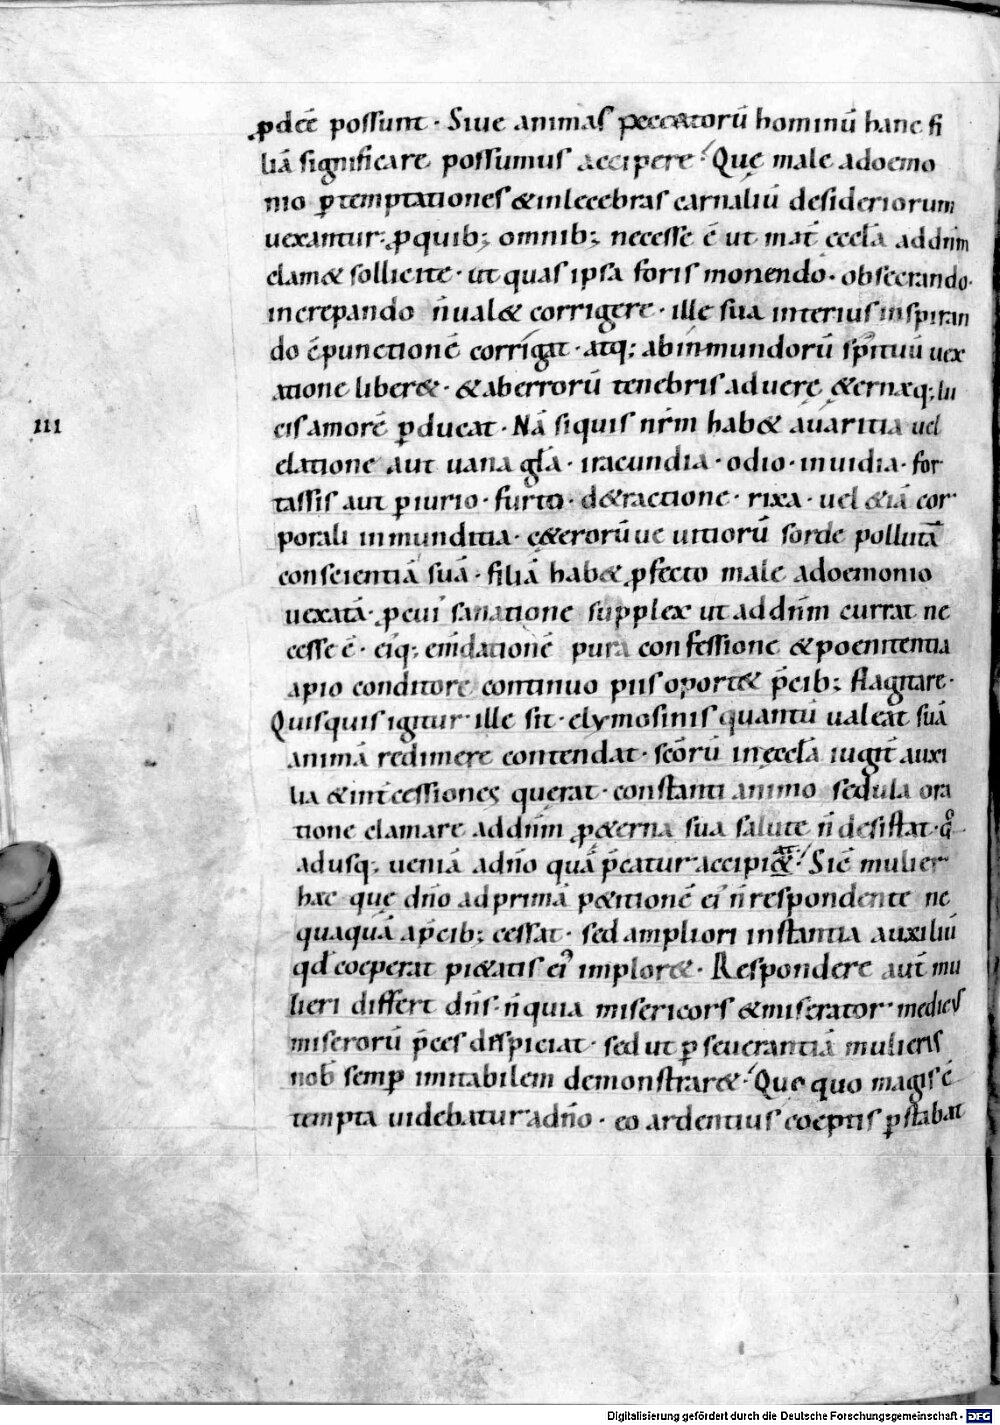 ꝓdeē possunt · Siue animas peccatorū hominū hanc fi
liā significare possumus accipere · Quę male adoemo
nio ꝑtemptationes &inlecebras carnaliū desideriorum
uexantur · ꝓquib; omnib; necesse ē ut mat̄ eccl̄a addn̄m
clam& sollicite · ut quas ipsa foris monendo · obsecrando ·
increpando n̄ ual& corrigere · ille sua interius inspiran
do c̄punctionē corrigat · atq; abinmundorū sp̄ituū uex
atione liber& · & aberrorū tenebris aduerę &ernæq; lu
cis amorē ꝑducat · Nā siquis nr̄m hab& auaritia uel
III
elatione aut uana gl̄a · iracundia · odio · inuidia · for
tassis aut ꝑiurio · furto · d&ractione · rixa · uel &iā cor
porali inmunditia · c&erorūue uitiorū sorde pollutā
conscientiā suā · filiā hab& ꝓfecto male adoemonio
uexatā · ꝓcui' sanatione supplex ut addn̄m currat ne
cesse ē · ei'q; em̄dationē pura confessione &poenitentia
apio conditore continuo piis oport& p̄cib; flagitare ·
Quisquis igitur ille sit · elymosinis quantū ualeat suā
animā redimere contendat · sc̄orū inęccl̄a iugit̄ auxi
lia &int̄cessiones querat · constanti animo sedula ora
tione clamare addn̄m ꝓ&erna sua salute n̄ desistat ·
adusq; ueniā adn̄o quā p̄catur accipi& · Sic mulier
hæc quę dn̄o adprimā p&itionē ei n̄ respondente ne
quaquā ap̄cib; cessat · sed ampliori instantia auxiliū
qd̄ coeperat pi&atis ei' implor& · Respondere aut̄ mu
lieri differt dn̄s · n̄ quia misericors &miserator medicus
miserorū p̄ces despiciat · sed ut ꝑseuerantiā mulieris
nob̄ semꝑ imitabilem demonstrar& · Quę quo magis c̄
tempta uidebatur adn̄o · eo ardentius coeptis ꝑstabat
Digitalisierung gefördert durch die Deutsche Forschungsgemeinschaft - DFG